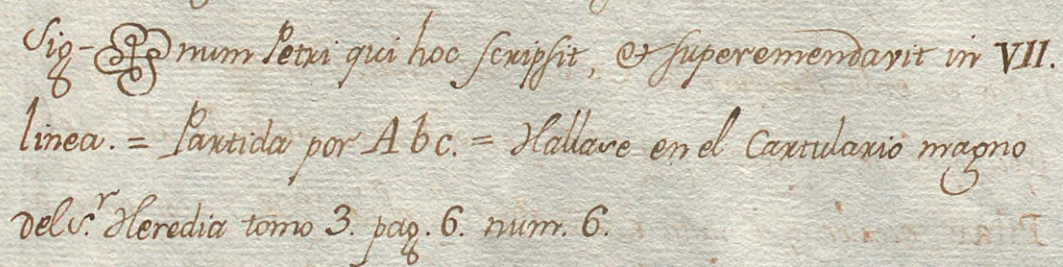 Sig-num Petri qui hoc scripsit, et superemendavit in VII.
linea. = Partida por Abc. = Hallase en el Cartulario magno
del S.r Heredia tomo 3. pag. 6. num. 6.